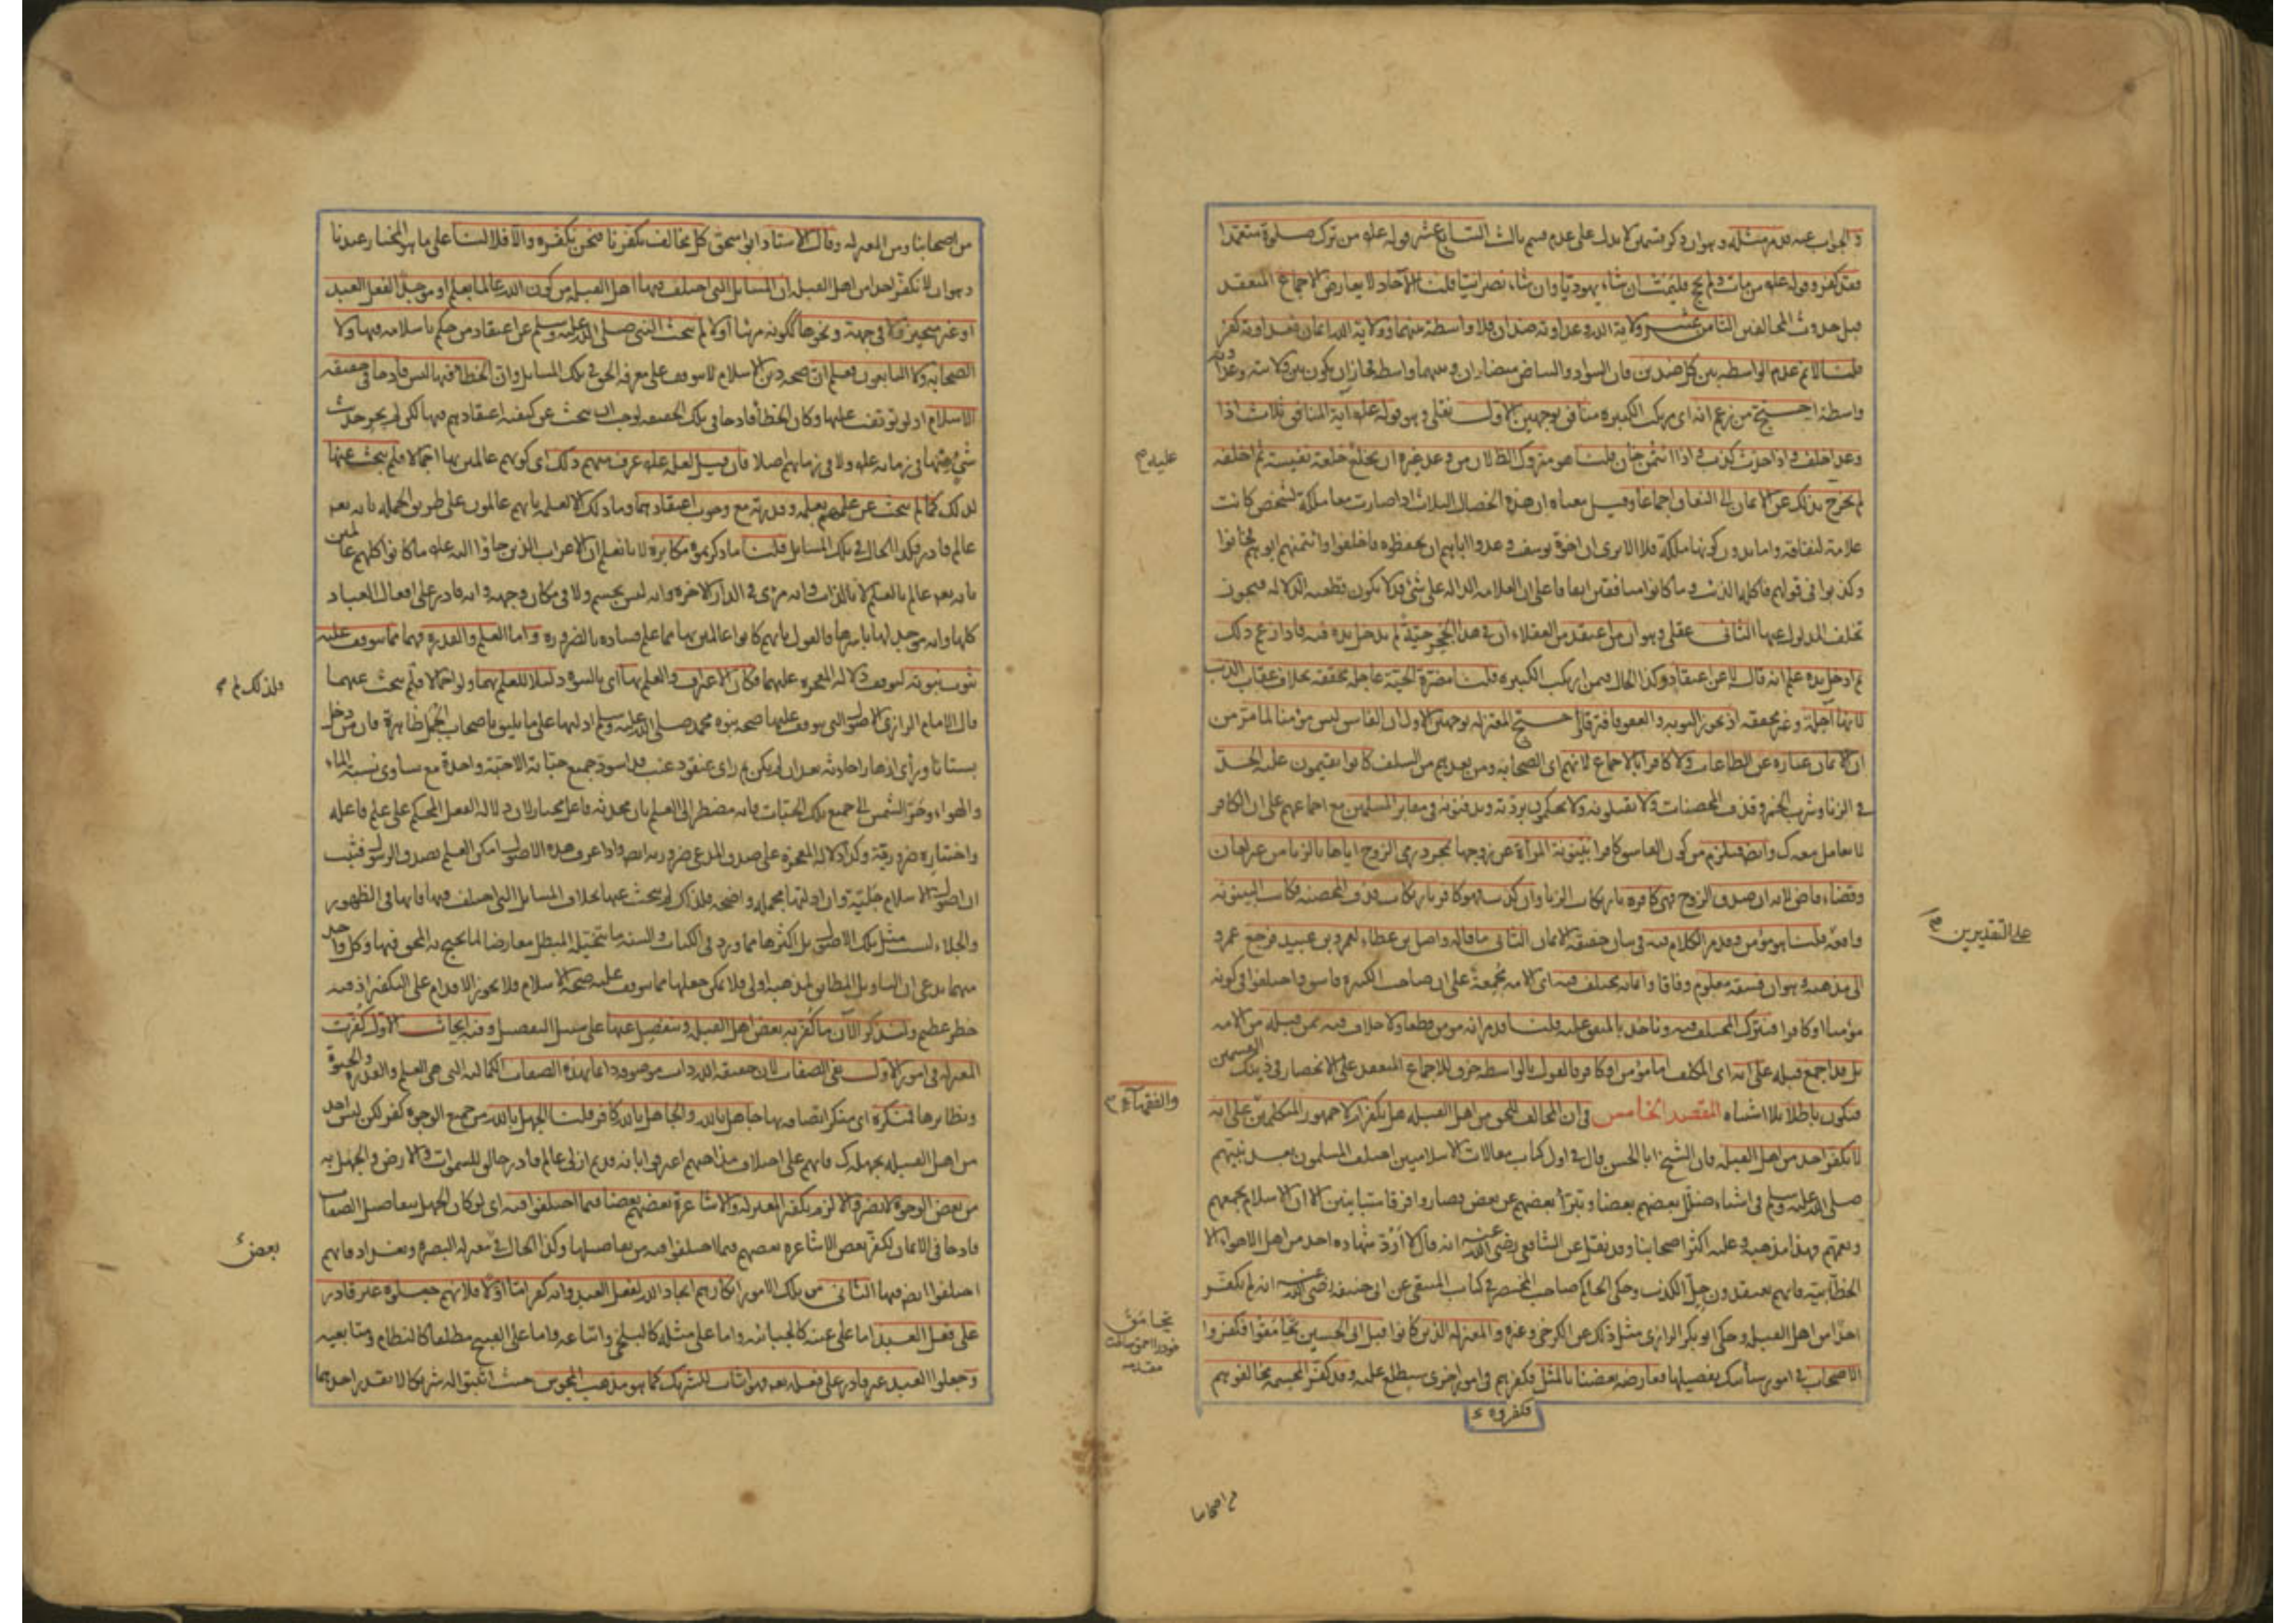 و الجواب عنه ما مر مثله وهوان ذكر قسمين لا يدل على عدم قسم ثالث السابع عشر قوله عله من ترك صلوة متعمدا
فقد كفر وقوله عله من مات ولم يحج فليمت ان شاء يهوديا وان شاء نصرانيا قلنا الآحاد لا يعارض الاجماع المنعقد
قبل حدوث المخالفين الثامن عشر ولاية الله وعداوته ضدان فلا واسطة بينهما وولاية الله ايمان فعداوته كفر
قلنا لا نم عدم الواسطة بين كل ضدين فان السواد والبياض متضادان وبينهما واسطة فجاز ان يكون بين ولايته وعداوته
واسطة احتج من زعم انه اى مرتكب الكبيره منافق بوجهين الاول نقلى وهو قوله عله آية المنافق ثلاث اذا
وعد اخلف و اذا حدث كذب و اذا ائتمن خان قلنا هو متروك الظ لان من وعد غيره ان يخلع خلعة نفيسة ثم اخلفه
لم يخرج بذلك عن الايمان الى النفاق اجماعا وقيل معناه ان هذه الخصال الثلاث اذا صارت معا ملكة لشخص كانت
علامة لنفاقه واما بدون كونها ملكة فلا الا يرى ان اخوة يوسف وعدوا اباهم ان يحفظوه فاخلفوا وائتمنهم ابوهم فخانوا
وكذبوا فى قولهم فاكله الذئب و ما كانوا منافقين اتفاقا على ان العلامه الداله على شئ قد لا يكون قطعيه الدلاله فيجوز
تخلف المدلول عنها الثانى عقلى وهو ان من اعتقد من العقلاء ان فى هذا الجحر حيّة لم يدخل يده فيه فاذا زعم ذلك
ثم ادخل يده علم انه قاله لا عن اعتقاد وكذا الحال فيمن ارتكب الكبيره قلنا مضرة الحية عاجله محققه بخلاف عقاب الذنب
لانها آجلة وغير محققه اذ يجوز التوبه و العفو فافترقا احتج المعتزله بوجهين الاول ان الفاسق ليس مؤمنا لما مر من
ان الايمان عباره عن الطاعات ولا كافرا بالاجماع لانهم اى الصحابه ومن بعدهم من السلف كانوا يقيمون عليه الحد
فى الزنا وشرب الخمر وقذف المحصنات ولا يقتلونه ولا يحكمون بردّته ويدفنونه فى مقابر المسلمين مع اجماعهم على ان الكافر
لا يعامل معه ك وايضا فيلزم من كون الفاسق كافرا بينونة المرأة عن زوجها بمجرد رمى الزوج اياها بالزنا من غير لعان
وقضاء قاض لانه ان صدق الزوج فهى كافره بارتكاب الزنا وان كذب فهو كافر بارتكاب قذف المحصنه فكانت البينونه
واقعة قلنا هو مؤمن وقد مر الكلام فيه فى بيان حقيقة الايمان الثانى ما قاله واصل بن عطاء لعمرو بن عبيد فرجع عمرو
الى مذهبه وهو ان فسقه معلوم وفاقا وايمانه مختلف فيه اى الامه مجمعة على ان صاحب الكبيره فاسق واختلفوا فى كونه
مؤمنا او كافرا فنترك المختلف فيه وناخذ بالمتفق عليه قلنا قد مر انه مومن قطعا ولا خلاف فيه ممن قبله من الامه
بل قد اجمع قبله على انه اى المكلف اما مؤمن او كافر فالقول بالواسطه خرق للاجماع المنعقد على الانحصار فى ذينك القسمين
فيكون باطلا بلا اشتباه المقصد الخامس فى ان المخالف للحق من اهل القبله هل يكفر ام لا جمهور المتكلمين على انه
لا يكفر احد من اهل القبله فان الشيخ ابا الحسن قال فى اول كتاب مقالات الاسلاميين اختلف المسلمون بعد نبيهم
صلى الله عليه وسلم فى اشياء ضلّل بعضهم بعضا و تبرّأ بعضهم عن بعض فصاروا فرقا متباينين الا ان الاسلام يجمعهم
ويعمّهم فهذا مذهبه وعليه اكثر اصحابنا وقد نقل عن الشافعى رضى الله عنه انه قال لا اردّ شهاده احد من اهل الاهواء الا
الخطابيّة فانهم يعتقدون حلّ الكذب وحكى الحاكم صاحب المختصر فى كتاب المنتقى عن ابى حنيفه رضى الله عنه انه لم يكفّر
احدا من اهل القبله وحكى ابو بكر الرازى مثل ذلك عن الكرخى وغيره والمعتزله الذين كانوا قبل ابى الحسين تحامقوا فكفروا
الاصحاب فى امور سيأتيك تفصيلها فعارضه بعضنا بالمثل فكفرهم فى امور اخرى ستطلع عليه وقد كفّر المجسمه مخالفوهم
فكفروه ء
عليه م
على التقديرين صح
والفقهاء م
تحامق
خود را احمق ساخت
مقدمه
من اصحابنا
من اصحابنا ومن المعتزله وقال الاستاذ ابو اسحق كل مخالف يكفّرنا فنحن نكفّره والا فلا لنا على ما هو المختار عندنا
وهو ان لا نكفّر احدا من اهل القبله ان المسايل التى اختلف فيها اهل القبله من كون الله عالما بعلم او موجدا لفعل العبد
او غير متحيز ولا فى جهة و نحوها ككونه مرئيا او لا لم يبحث النبى صلى الله عليه وسلم عن اعتقاد من حكم باسلامه فيها ولا
الصحابه ولا التابعون فعلم ان صحة دين الاسلام لا يتوقف على معرفه الحق فى تلك المسايل وان الخطأ فيها ليس قادحا فى حقيقه
الاسلام اذ لو توقفت عليها وكان الخطأ قادحا فى تلك الحقيقه لوجب ان يبحث عن كيفيه اعتقادهم فيها لكن لم يجر حديث
شئ منها فى زمانه عله ولا فى زمانهم اصلا فان قيل لعله عله عرف منهم ذلك اى كونهم عالمين بها اجمالا فلم يبحث عنها
لذلك كما لم يبحث عن علمهم بعلمه وقدرته مع وجوب اعتقادهما وما ذلك الا لعلمه بانهم عالمون على طريق الجمله بانه تعه
عالم قادر فكذا الحال فى تلك المسايل قلنا ما ذكرتموه مكابره لانا نعلم ان الاعراب الذين جاؤا اليه عله ما كانوا كلهم عالمين
بانه تعه عالم بالعلم لا بالذات وانه مرئى فى الدار الاخره وانه ليس بجسم ولا فى مكان وجهه وانه قادر على افعال العباد
كلها وانه موجد لها باسرها فالقول بانهم كانوا عالمين بها مما علم فساده بالضروره واما العلم والقدره فهما مما يتوقف عليه
ثبوت نبوته لتوقف دلاله المعجزه عليهما فكان الاعتراف والعلم بها اى بالنبوه دليلا للعلم بهما ولو اجمالا فلم يبحث عنهما
قال الامام الرازى الاصول التى يتوقف عليها صحه نبوه محمد صلى الله عليه وسلم ادلتها على ما يليق باصحاب الجمل ظاهرة فان من دخل
بستانا ورأى ازهارا حادثه بعد ان لم يكن ثم راى عنقود عنب قد اسودّ جميع حبّاته الا حبّة واحدة مع تساوى نسبة الماء
والهواء وحرّ الشمس الى جميع تلك الحبّات فانه مضطر الى العلم بان محدثه فاعل مختار لان دلاله الفعل المحكم على علم فاعله
واختياره ضرورية وكذا دلاله المعجزه على صدق المدعى ضروريه ايضا واذا عرف هذه الاصول امكن العلم بصدق الرسول فثبت
ان اصول الاسلام جليّة وان ادلتها مجمله واضحه فلذلك لم يبحث عنها بخلاف المسايل التى اختلف فيها فانها فى الظهور
والجلاء ليست مثل تلك الاصول بل اكثرها مما ورد فى الكتاب والسنه ما يتخيّله المبطل معارضا لما يحتج به المحق فيها وكل واحد
منهما يدعى ان التاويل المطابق لمذهبه اولى فلا يمكن جعلها مما يتوقف عليه صحة الاسلام فلا يجوز الاقدام على التكفير اذ فيه
خطر عظيم ولنذكر الآن ما كُفّر به بعض اهل القبله ونتفصى عنها على سبيل التفصيل وفيه ابحاث الاول كُفّرت
المعتزله فى امور الاول نفى الصفات لان حقيقه الله ذات موصوفه دائما بهذه الصفات الكماليه التى هى العلم والقدره والحيوة
ونظايرها فمنكره اى منكر اتصافه بها جاهل بالله والجاهل بالله كافر قلنا الجهل بالله من جميع الوجوه كفر لكن ليس احد
من اهل القبله يجهله ك فانهم على اختلاف مذاهبهم اعترفوا بانه قديم ازلى عالم قادر خالق للسموات والارض والجهل به
من بعض الوجوه لا يضر والا لزم تكفير المعتزله والاشاعرة بعضهم بعضا فيما اختلفوا فيه اى لو كان الجهل بتفاصيل الصفات
قادحا فى الايمان لكفّر بعض الاشاعره بعضهم فيما اختلفوا فيه من تفاصيلها وكذا الحال فى معتزله البصره وبغداد فانهم
اختلفوا ايضا فيها الثانى من تلك الامور انكارهم ايجاد الله لفعل العبد وانه كفر امّا اولا فلانهم جعلوه غير قادر
على فعل العبد اما على عينه كالجبائيه واما على مثله كالبلخى واتباعه واما على القبيح مطلقا كالنظام ومتابعيه
وجعلوا العبد غير قادر على فعله تعه فهو اثبات للشريك كما هو مذهب المجوس حيث اثبتوا له شريكا لا يقدر احدهما
فلذلك لم م
بعض ء